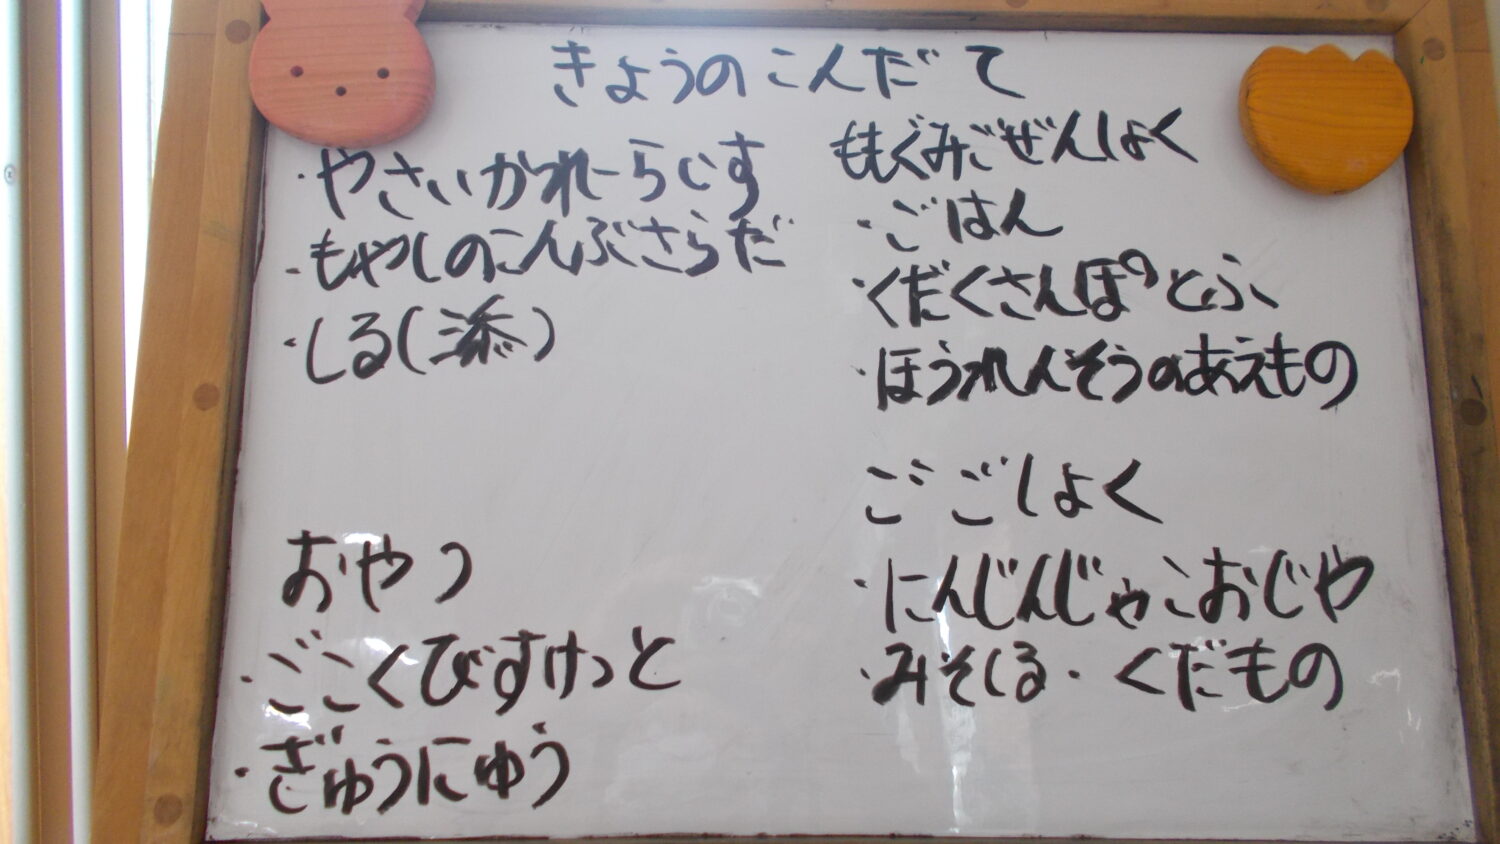 きょうのこんだて
・やさいかれーらいす
・もやしのこんぶさらだ
・しる(添)
おやつ
・ごこくびすけっと
・ぎゅうにゅう
ももぐみごぜんしょく
・ごはん
・くだくさんぽとふ
・ほうれんそうのあえもの
ごごしょく
・にんじんじゃこおじや
・みそしる・くだもの